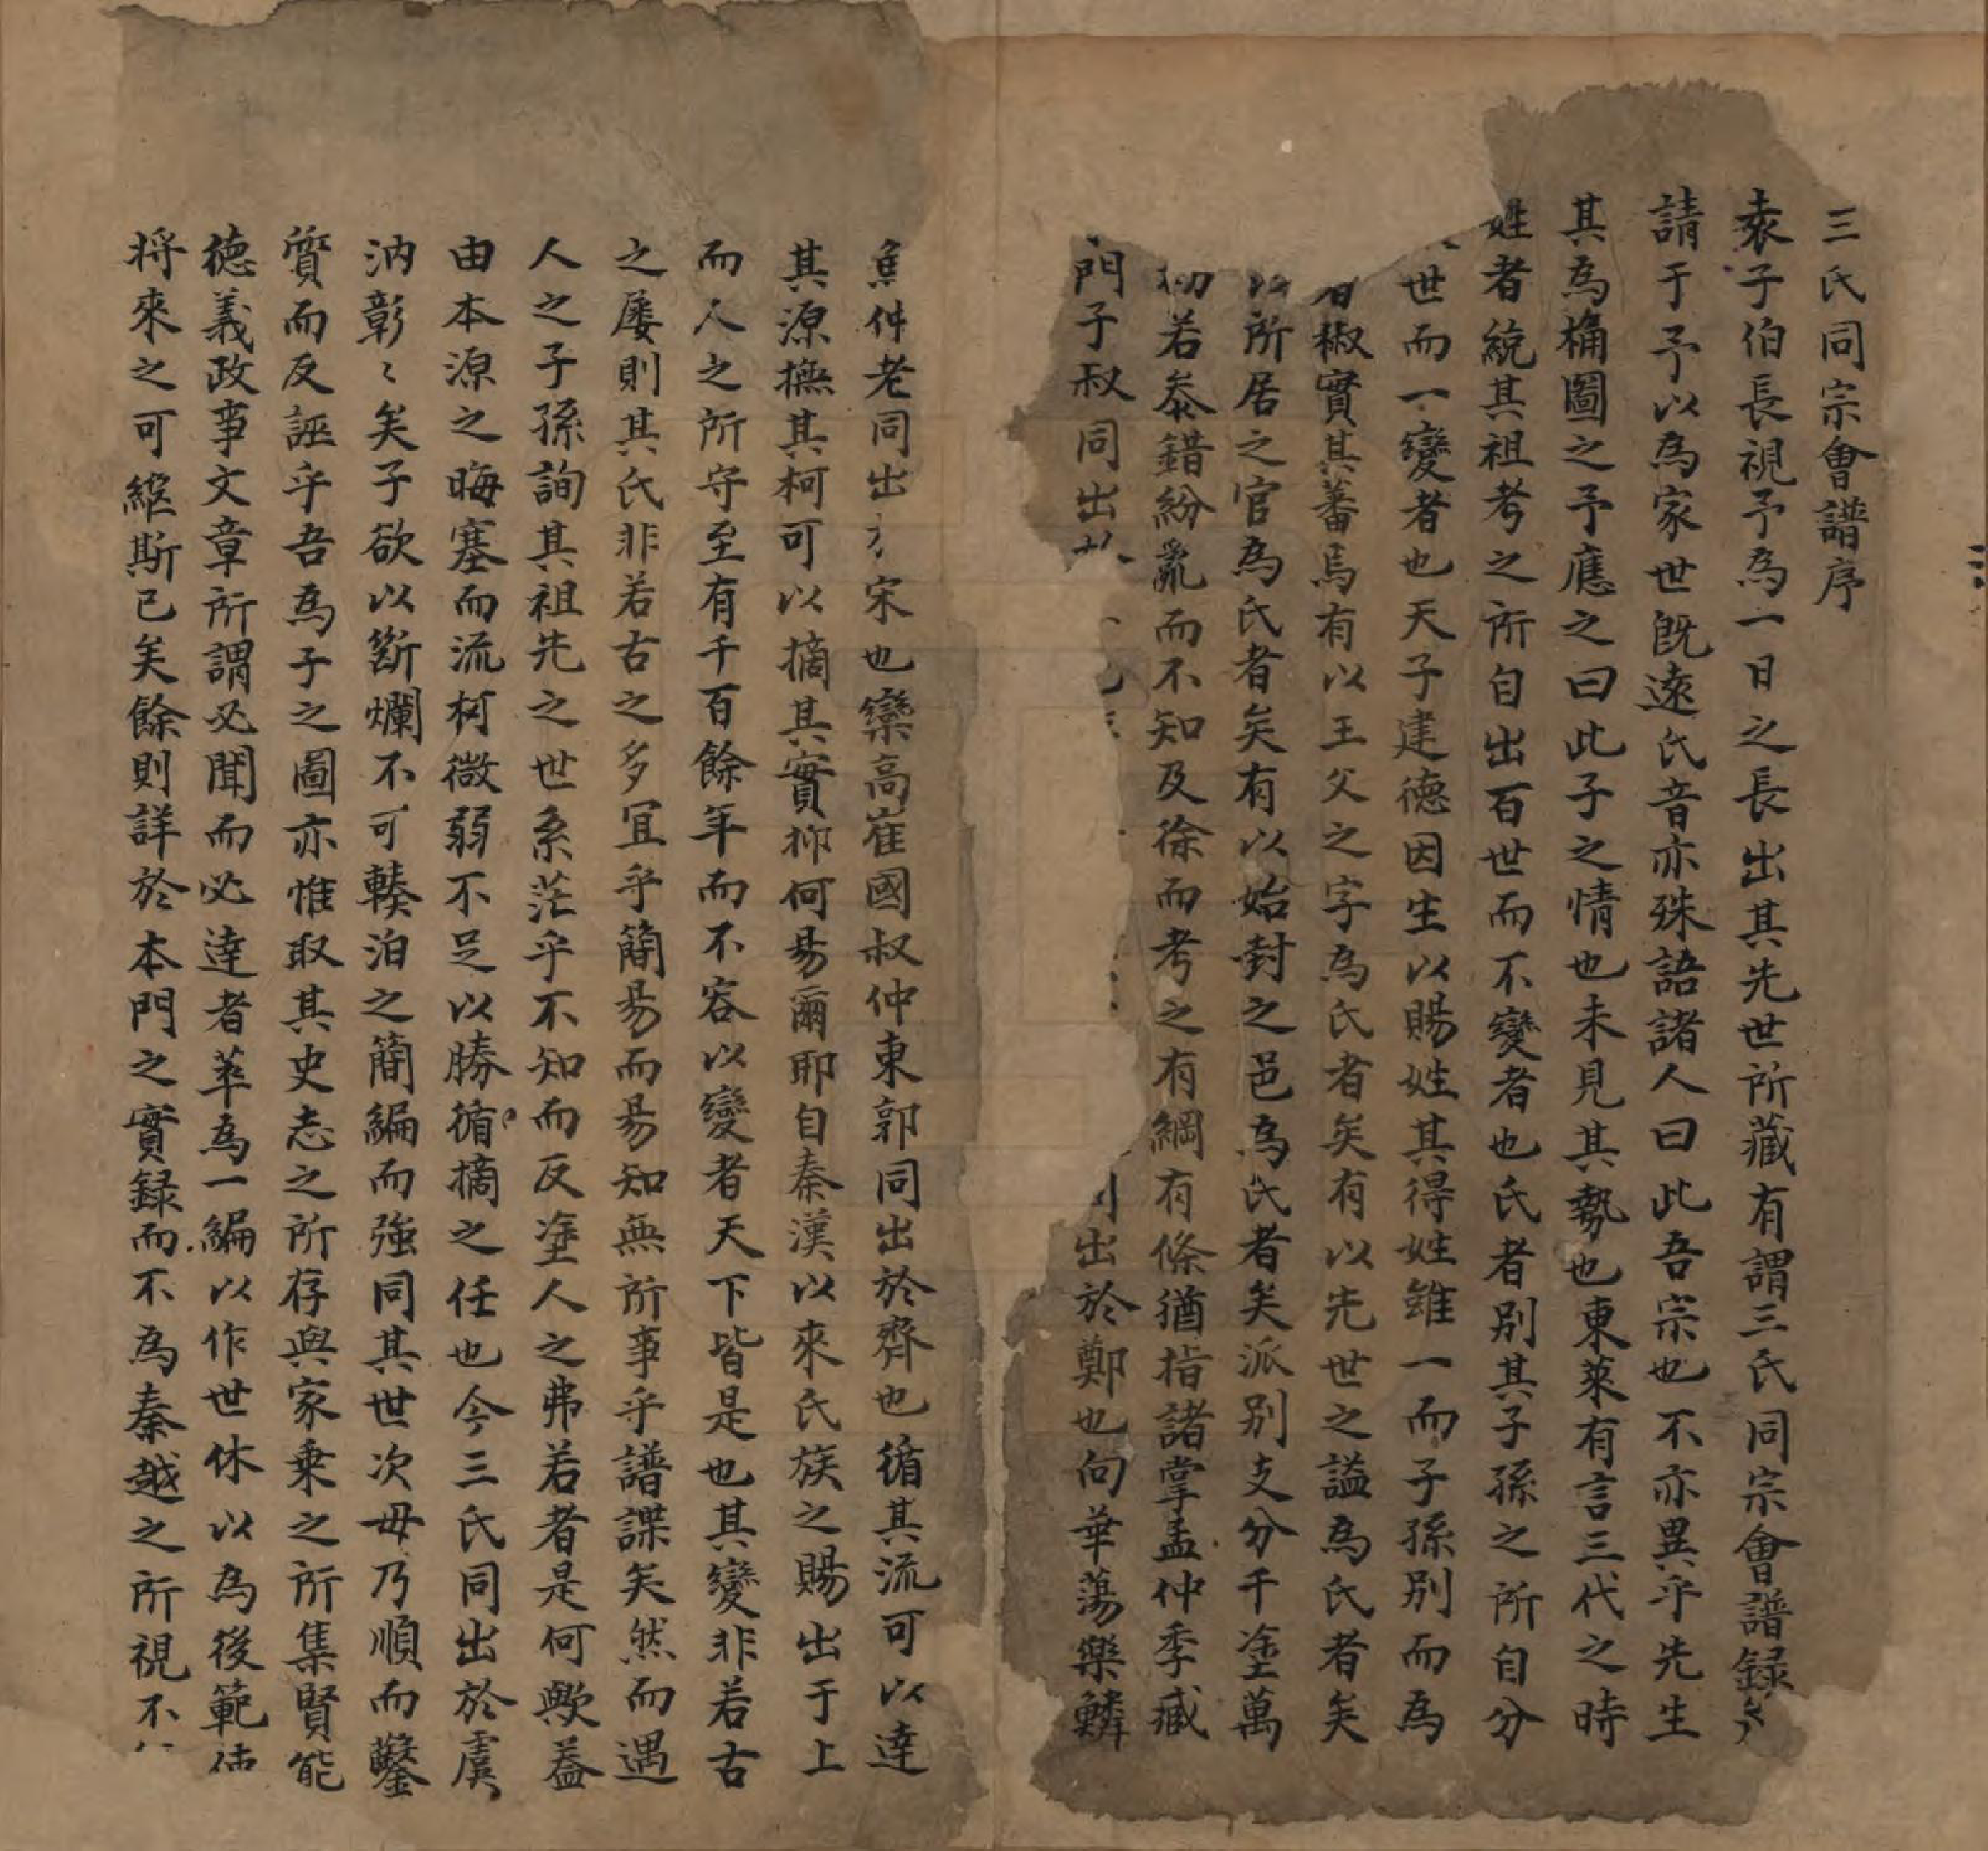 三氏同宗會譜序
袁子伯長視予為一日之長出其先世所藏有謂三氏同宗會譜錄
請于予以為家世既遠氏音亦殊語諸人曰此吾宗也不亦異乎先生
其為桷圖之予應之曰此子之情也未見其勢也東萊有言三代之時
姓者統其祖考之所自出百世而不變者也氏者別其子孫之所自分
世而一變者也天子建德因生以賜姓其得姓雖一而子孫別而為
椒實其蕃焉有以王父之字為氏者矣有以先世之謚為氏者矣
以所居之官為氏者矣有以始封之邑為氏者矣派別支分千塗萬
初若叅錯紛亂而不知及徐而考之有綱有條猶指諸掌孟仲季臧
門子叔同出 出於鄭也向華蕩樂鱗
魚仲老同出 宋也欒高崔國叔仲東郭同出於齊也循其流可以達
其源撫其柯可以摘其實抑何易爾耶自秦漢以來氏族之賜出于上
而人之所守至有千百餘年而不容以變者天下皆是也其變非若古
之屡則其氏非若古之多冝乎簡易而易知無所事乎譜諜矣然而遇
人之子孫詢其祖先之世系茫乎不知而反塗人之弗若者是何歟葢
由本源之晦塞而流柯微弱不足以勝循摘之任也今三氏同出於虞
汭彰〻矣子欲以斷爛不可輳泊之簡編而強同其世次毋乃順而鑿
質而反誣乎吾為子之圖亦惟取其史志之所存與家乗之所集賢能
德義政事文章所謂必聞而必達者萃為一編以作世休以為後範使
将來之可繼斯已矣餘則詳於本門之實録而不為秦越之所視不